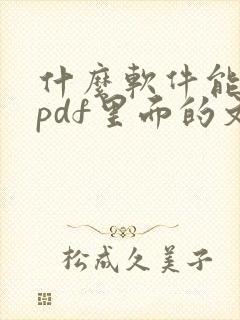 什麼軟件能
pdf里面的文
松成久美子